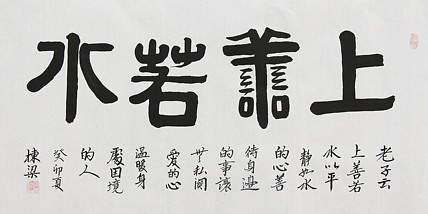 上善若水
老子云
上善若
水以平
靜如水
的心善
待身邊
的事讓
無私関
愛的心
温暖身
處困境
的人
癸卯夏
棟梁